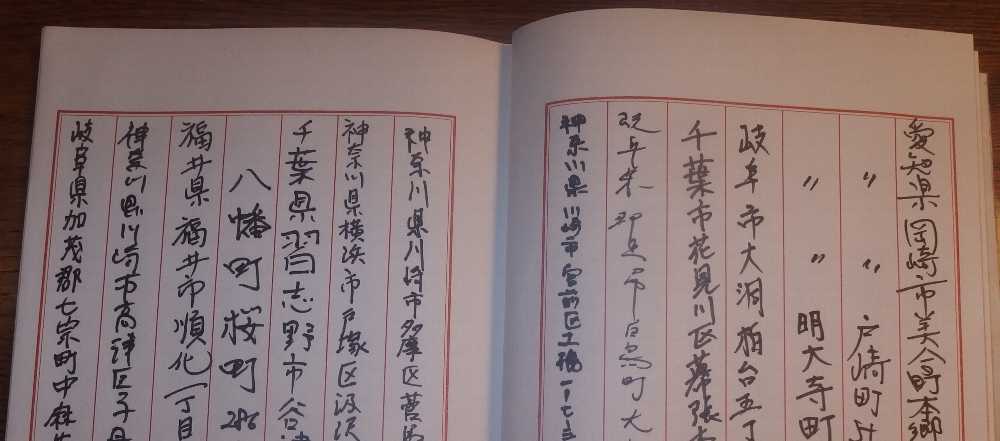 愛知県岡崎市美合町本郷
〃 〃 戸崎町
〃 〃 明大寺町
岐阜市大洞柏台五丁
千葉市花見川区幕張本
岐阜県郡上市白鳥町大
神奈川県川崎市宮前区土橋一ー七ー三
神奈川県川崎市多摩区菅馬
神奈川県横浜市戸塚区汲沢
千葉県習志野市谷津
八幡町桜町286
福井県福井市順化一丁目
神奈川県川崎市高津区子母
岐阜県加茂郡七宗町中麻生